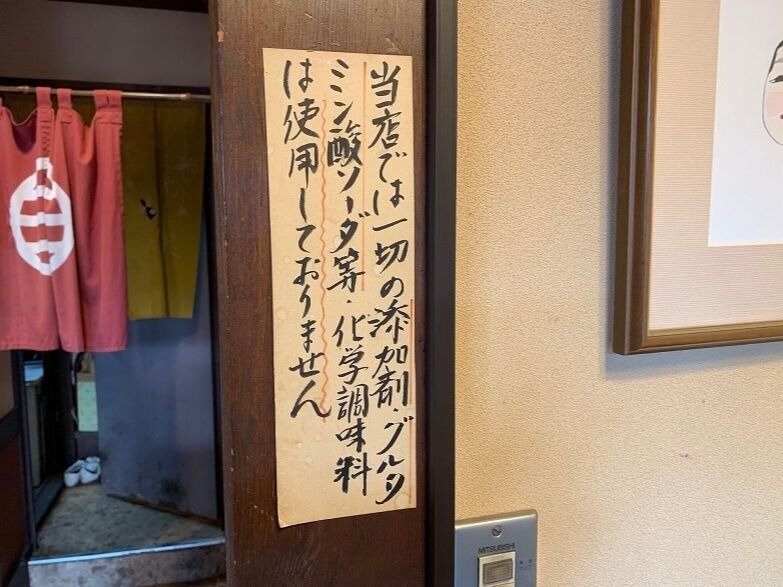 当店では一切の添加剤・グルタ
ミン酸ソーダ等・化学調味料
は使用しておりません
MITSUBISHI